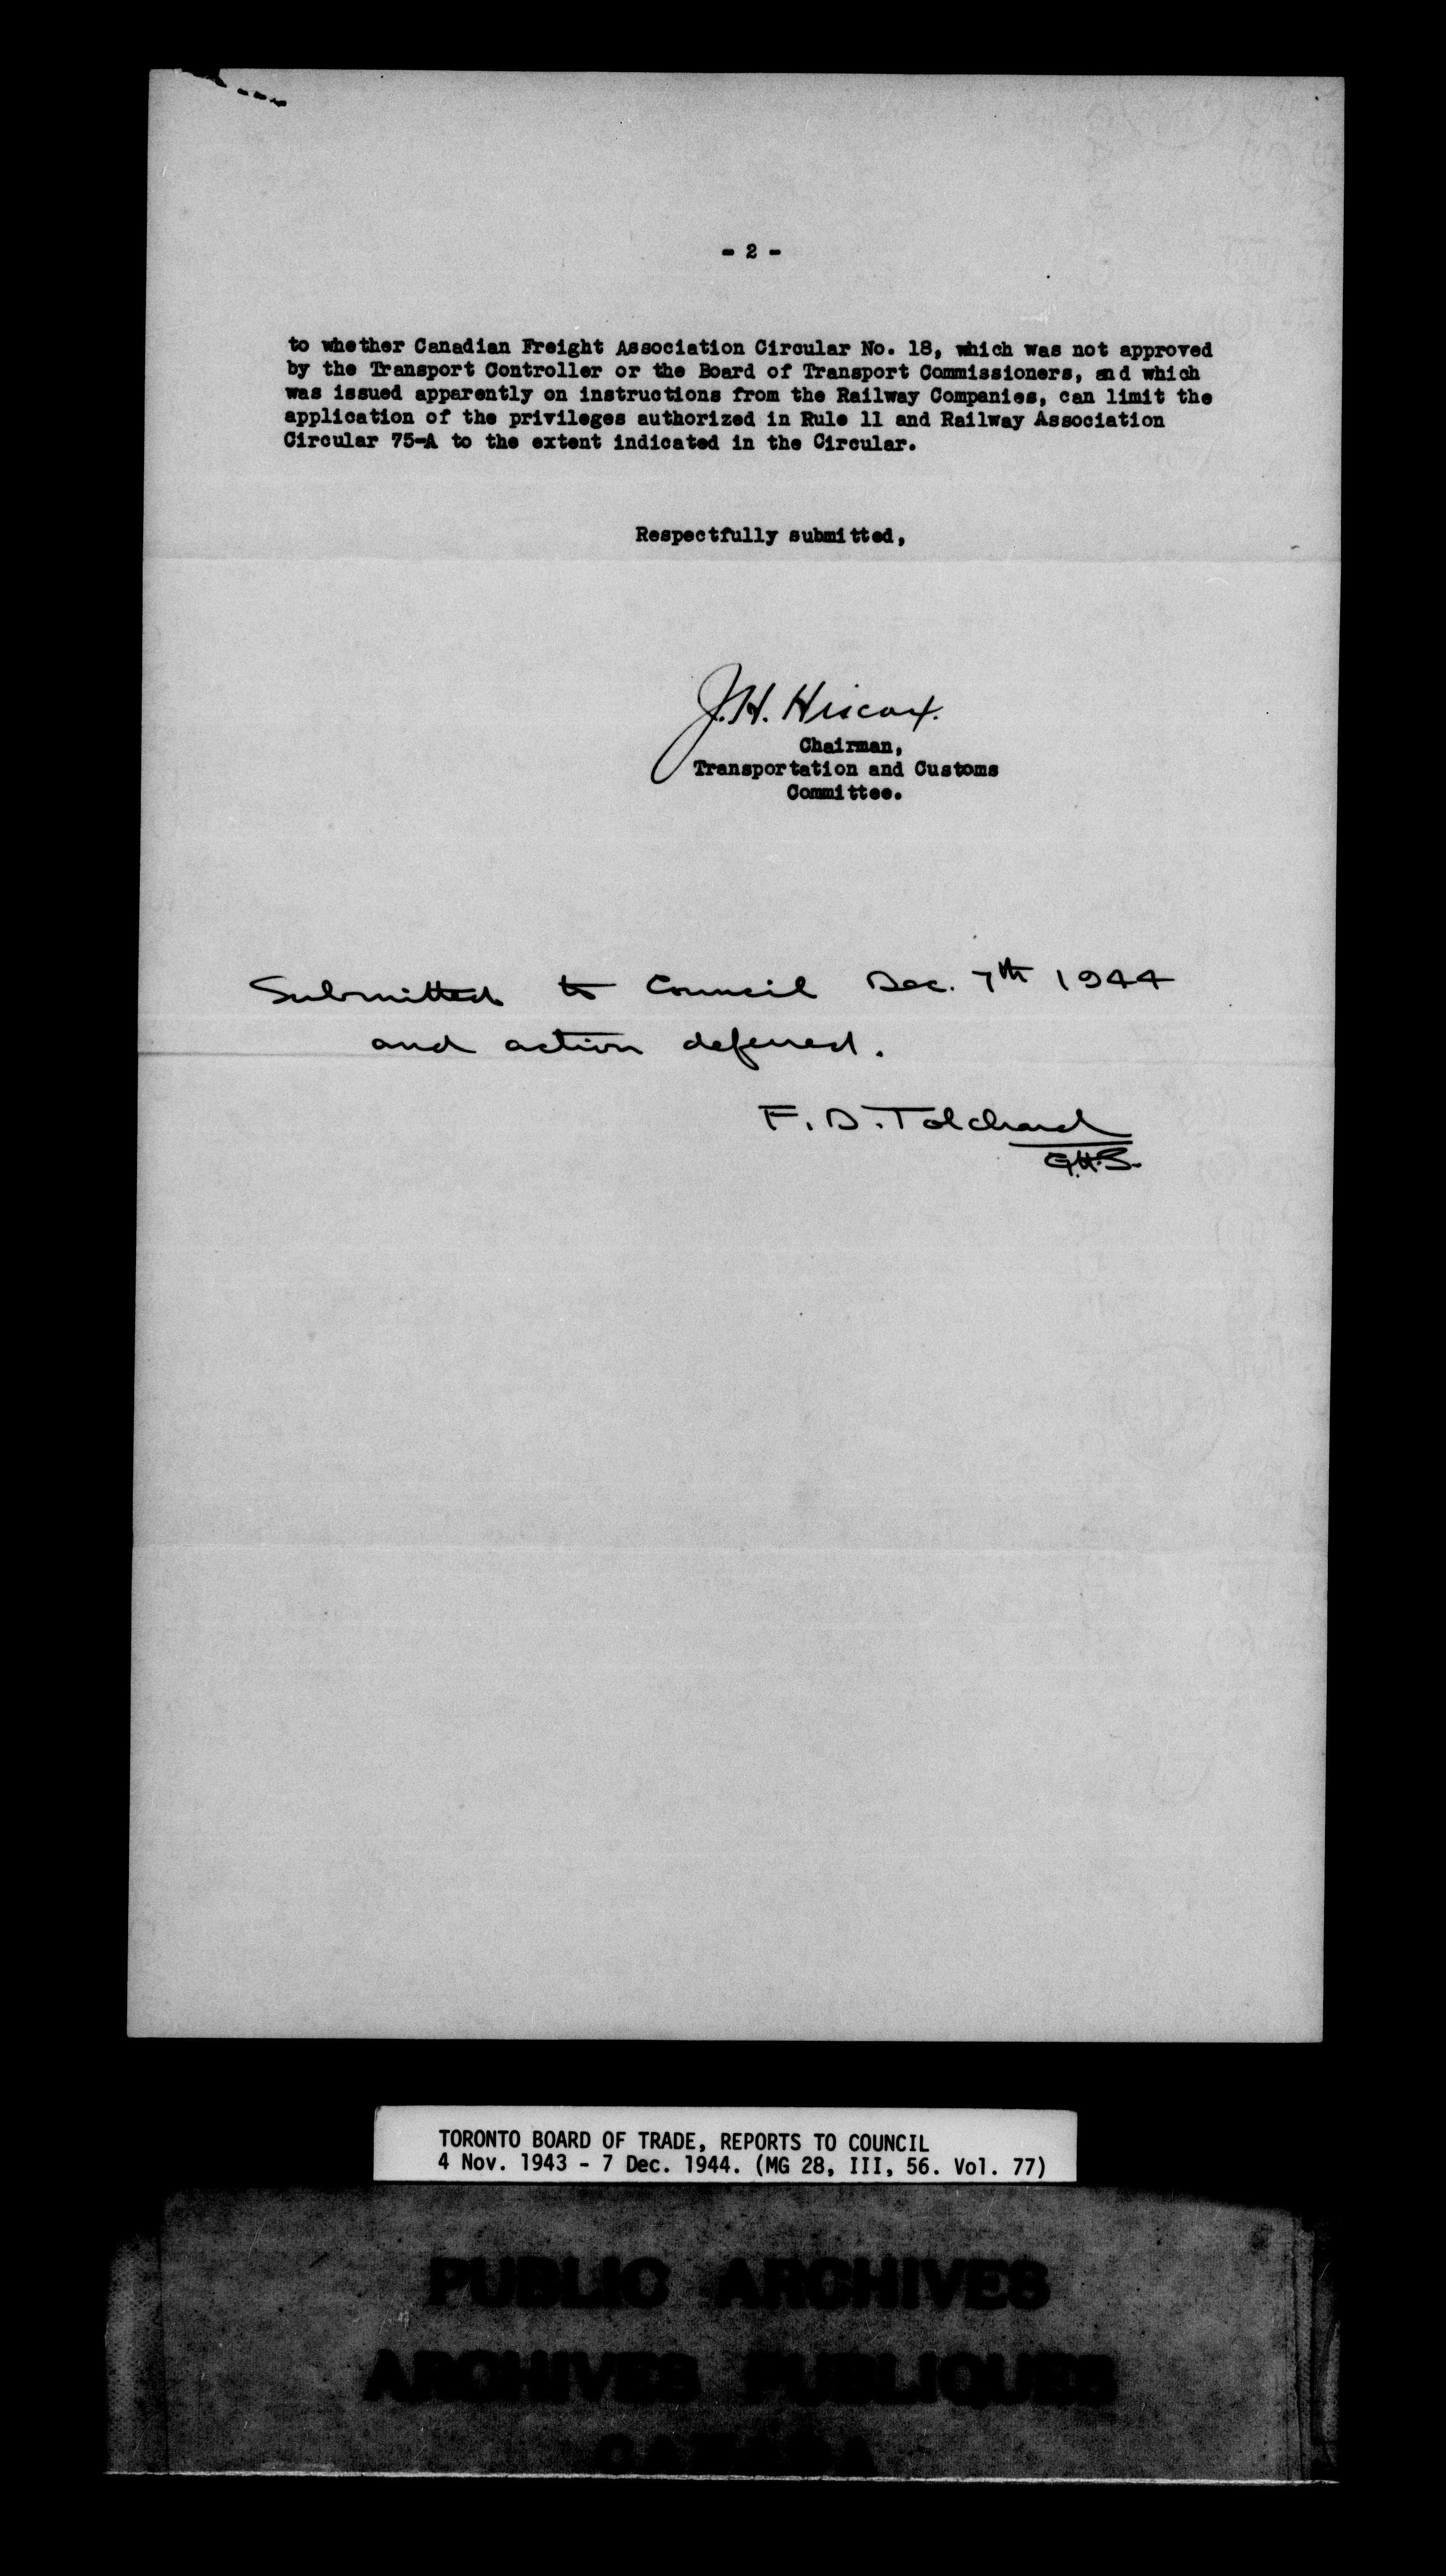 - 2 -
to whether Canadian Freight Association Circular No. 18, which was not approved
by the Transport Controller or the Board of Transport Commissioners, and which
was issued apparently on instructions from the Railway Companies, can limit the
application of the privileges authorized in Rule 11 and Railway Association
Circular 75-A to the extent indicated in the Circular.
Respectfully submitted,
J.H. Hiscox.
Chairman,
Transportation and Customs
Committee.
Submitted to Council Dec. 7th 1944
and action deferred.
F. D. Tolchard
G.H.S.
TORONTO BOARD OF TRADE, REPORTS TO COUNCIL
4 Nov. 1943 - 7 Dec. 1944. (MG 28, III, 56. Vol. 77)
PUBLIC ARCHIVES
ARCHIVES PUBLIQUES
CANADA